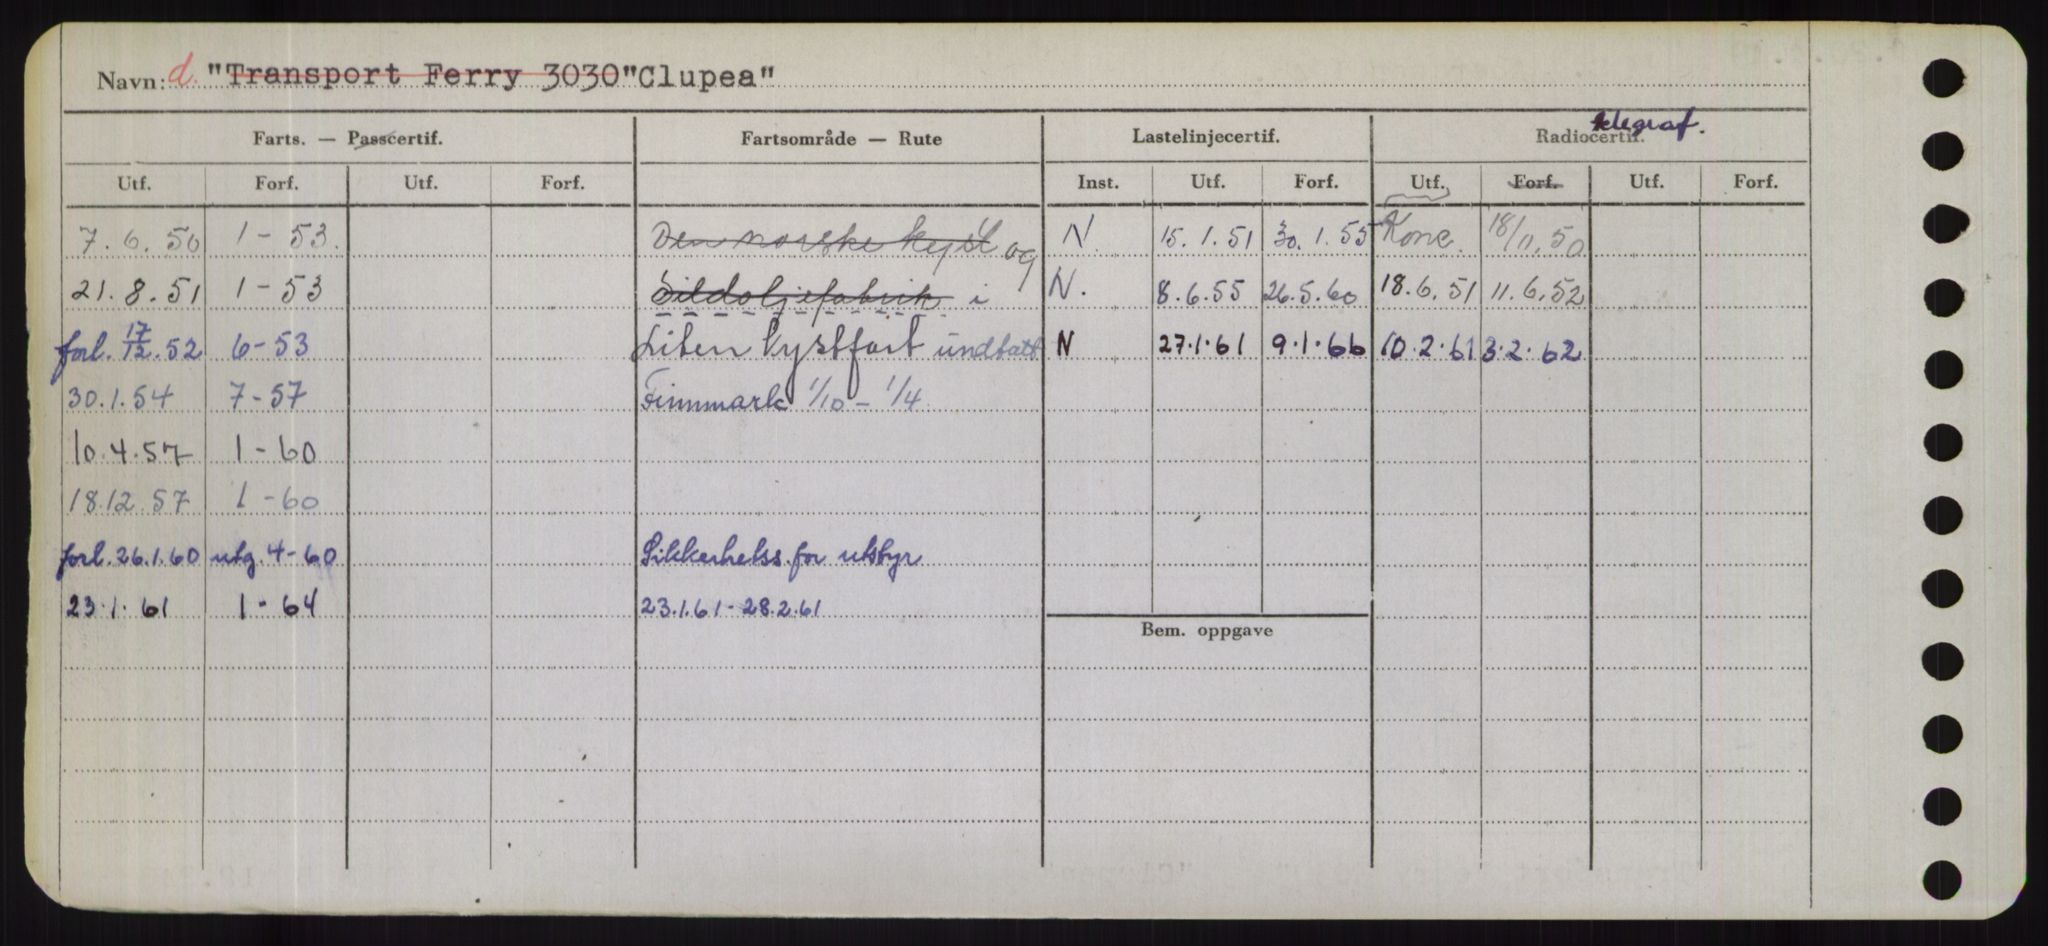 Navn: d. "Transport Ferry 3030"Clupea"
Farts. — Passcertif. Fartsområde — Rute Lastelinjecertif. Radiocertif. telegraf.
Utf. Forf. Utf. Forf. Inst. Utf. Forf. Utf. Forf. Utf. Forf.
7.6.50 1-53. Den norske kyst og N. 15.1.51 30.1.55 Konc. 18/11.50
21.8.51 1-53 Sildoljefabrik i N. 8.6.55 26.5.60 18.6.51 11.6.52
forl. 17/12.52 6-53 Liten kystfart undtatt N 27.1.61 9.1.66 10.2.61 3.2.62
30.1.54 7-57 Finnmark 1/10 - 1/4
10.4.57 1-60
18.12.57 1-60
forl. 26.1.60 utg. 4-60 Sikkerhetss. for utstyr
23.1.61 1-64 23.1.61-28.2.61
Bem. oppgave